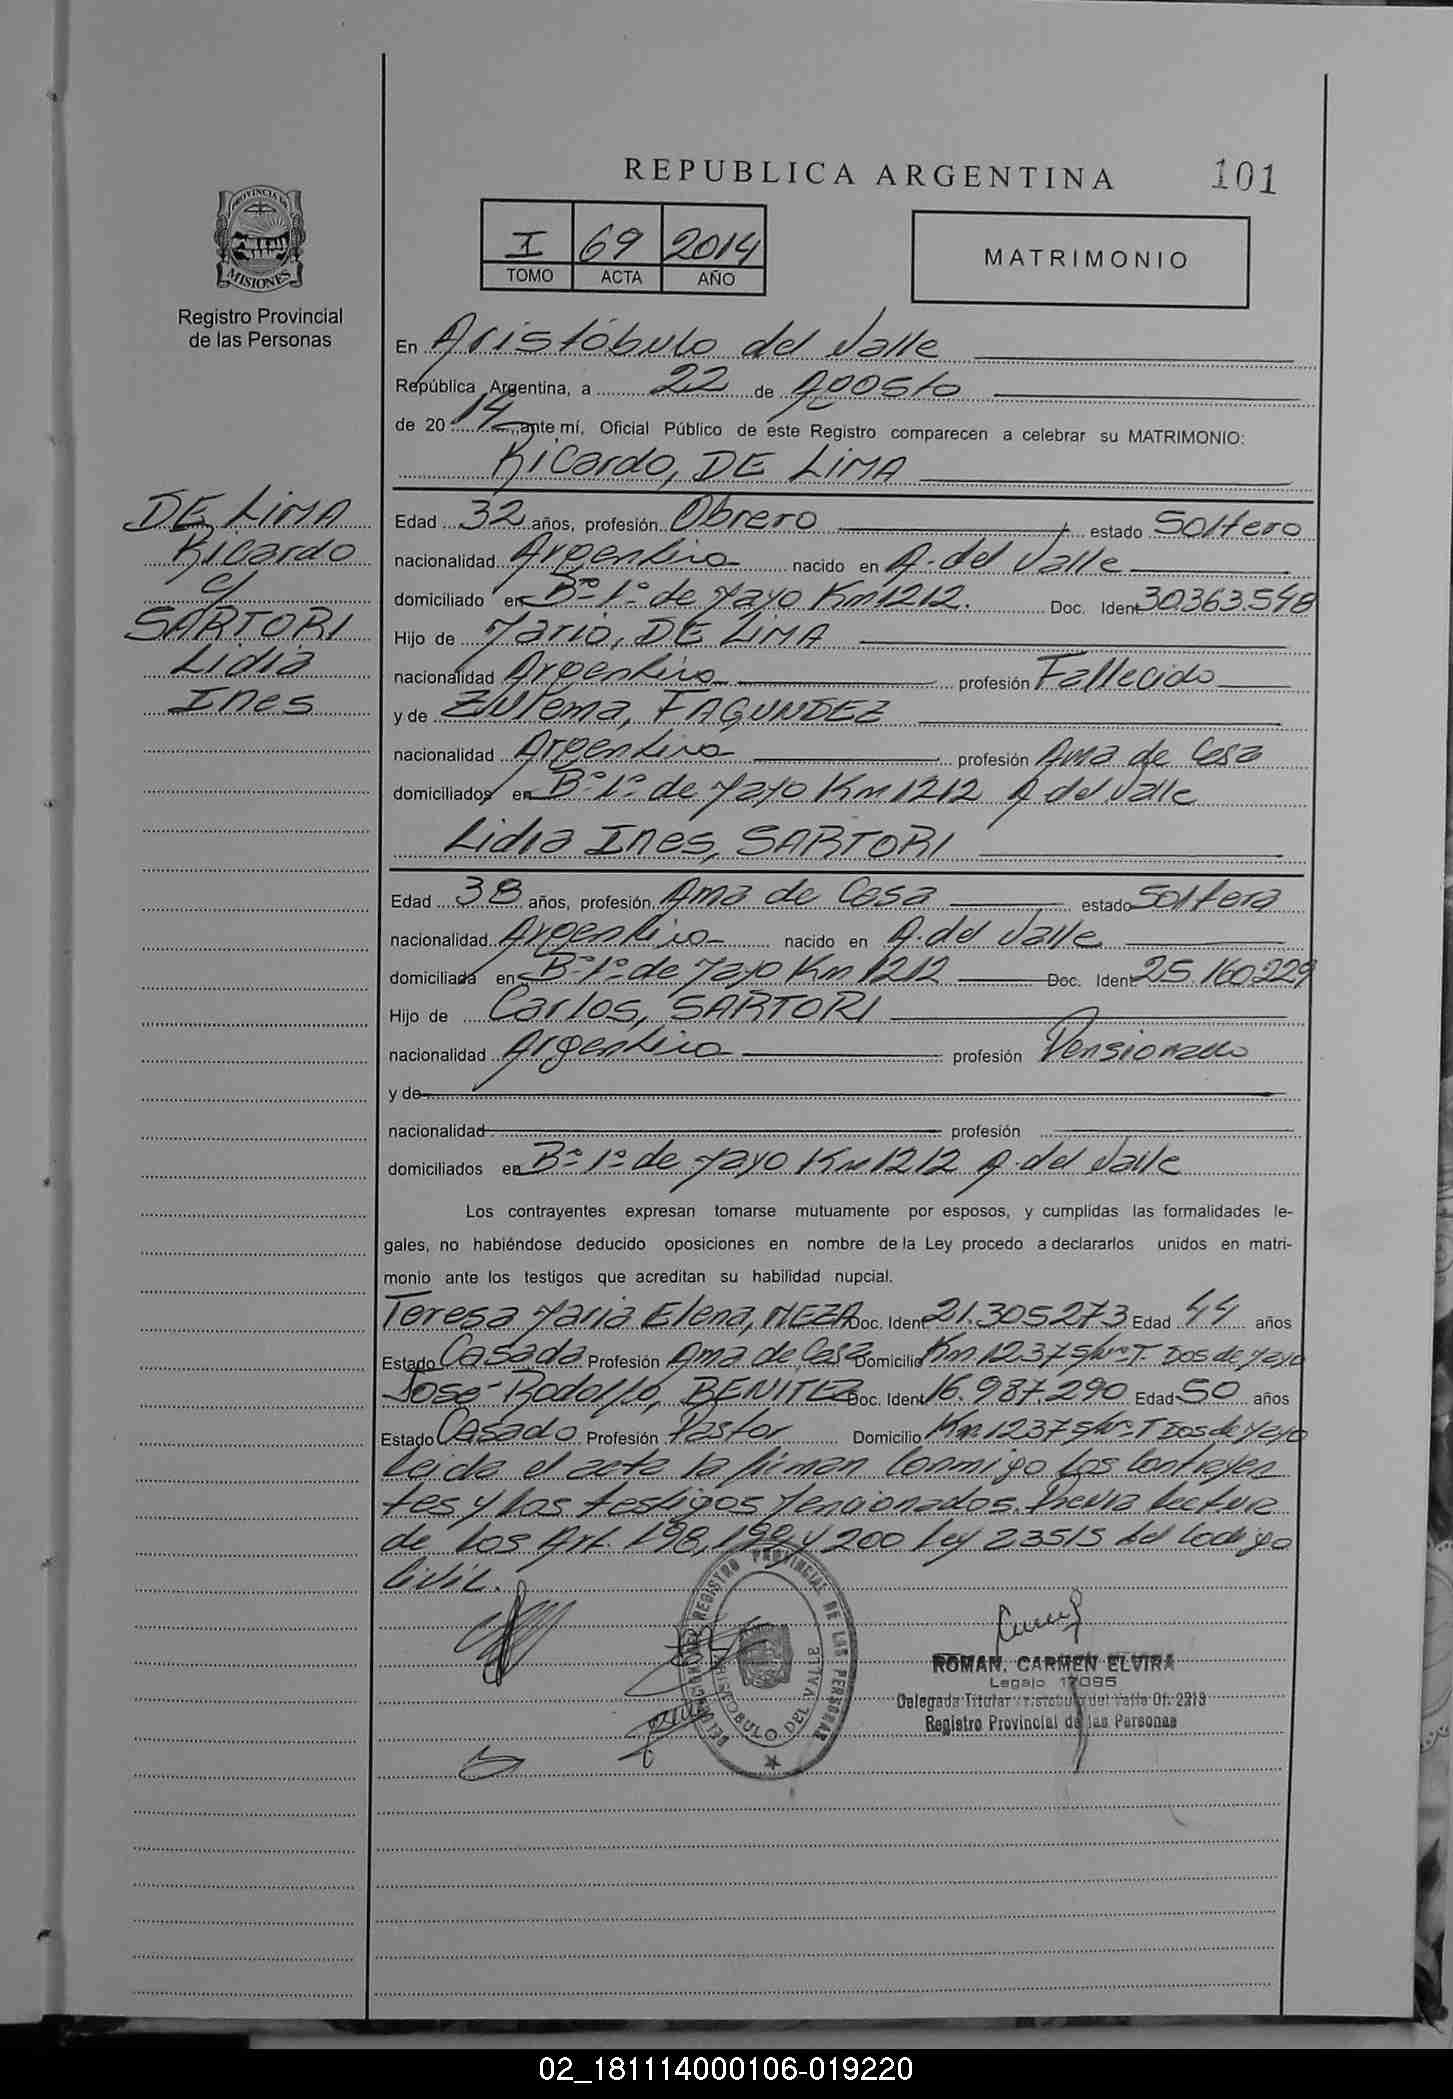 REPUBLICA ARGENTINA 101
PROVINCIA DE
MISIONES
Registro Provincial
de las Personas
I 69 2014
TOMO ACTA AÑO
MATRIMONIO
En Aristóbulo del Valle
República Argentina, a 22 de Agosto
de 20 14 ante mí, Oficial Público de este Registro comparecen a celebrar su MATRIMONIO:
Ricardo, DE LIMA
DE LIMA
Ricardo
c/
SARTORI
Lidia
Ines
Edad 32 años, profesión Obrero estado Soltero
nacionalidad Argentina nacido en A. del Valle
domiciliado en Bº 1º de Mayo Km 1212. Doc. Ident 30.363.548
Hijo de Mario, DE LIMA
nacionalidad Argentina profesión Fallecido
y de Zulema, FAGUNDEZ
nacionalidad Argentina profesión Ama de Casa
domiciliados en Bº 1º de Mayo Km 1212 A del Valle
Lidia Ines, SARTORI
Edad 38 años, profesión Ama de Casa estado Soltera
nacionalidad Argentina nacido en A. del Valle
domiciliada en Bº 1º de Mayo Km 1212 Doc. Ident 25.160.229
Hijo de Carlos, SARTORI
nacionalidad Argentina profesión Pensionado
y de
nacionalidad profesión
domiciliados en Bº 1º de Mayo Km 1212 A. del Valle
Los contrayentes expresan tomarse mutuamente por esposos, y cumplidas las formalidades le-
gales, no habiéndose deducido oposiciones en nombre de la Ley procedo a declararlos unidos en matri-
monio ante los testigos que acreditan su habilidad nupcial.
Teresa Maria Elena, MEZA Doc. Ident 21.305.273 Edad 44 años
Estado Casada Profesión Ama de Casa Domicilio Km 1237 S/Nº T. Dos de Mayo
José Rodolfo, BENITEZ Doc. Ident 16.987.290 Edad 50 años
Estado Casado Profesión Pastor Domicilio Km 1237 S/Nº T Dos de Mayo
Leida el acta la firman Conmigo Los Contrayen
tes y los testigos Mencionados. Previa lectura
de los Art. 198, 199 y 200 Ley 23515 del Codigo
Civil.
REGISTRO PROVINCIAL DE LAS PERSONAS
ARISTOBULO DEL VALLE
ROMAN, CARMEN ELVIRA
Legajo 17095
Delegada Titular Aristobulo del Valle Of. 2213
Registro Provincial de las Personas
02_181114000106-019220